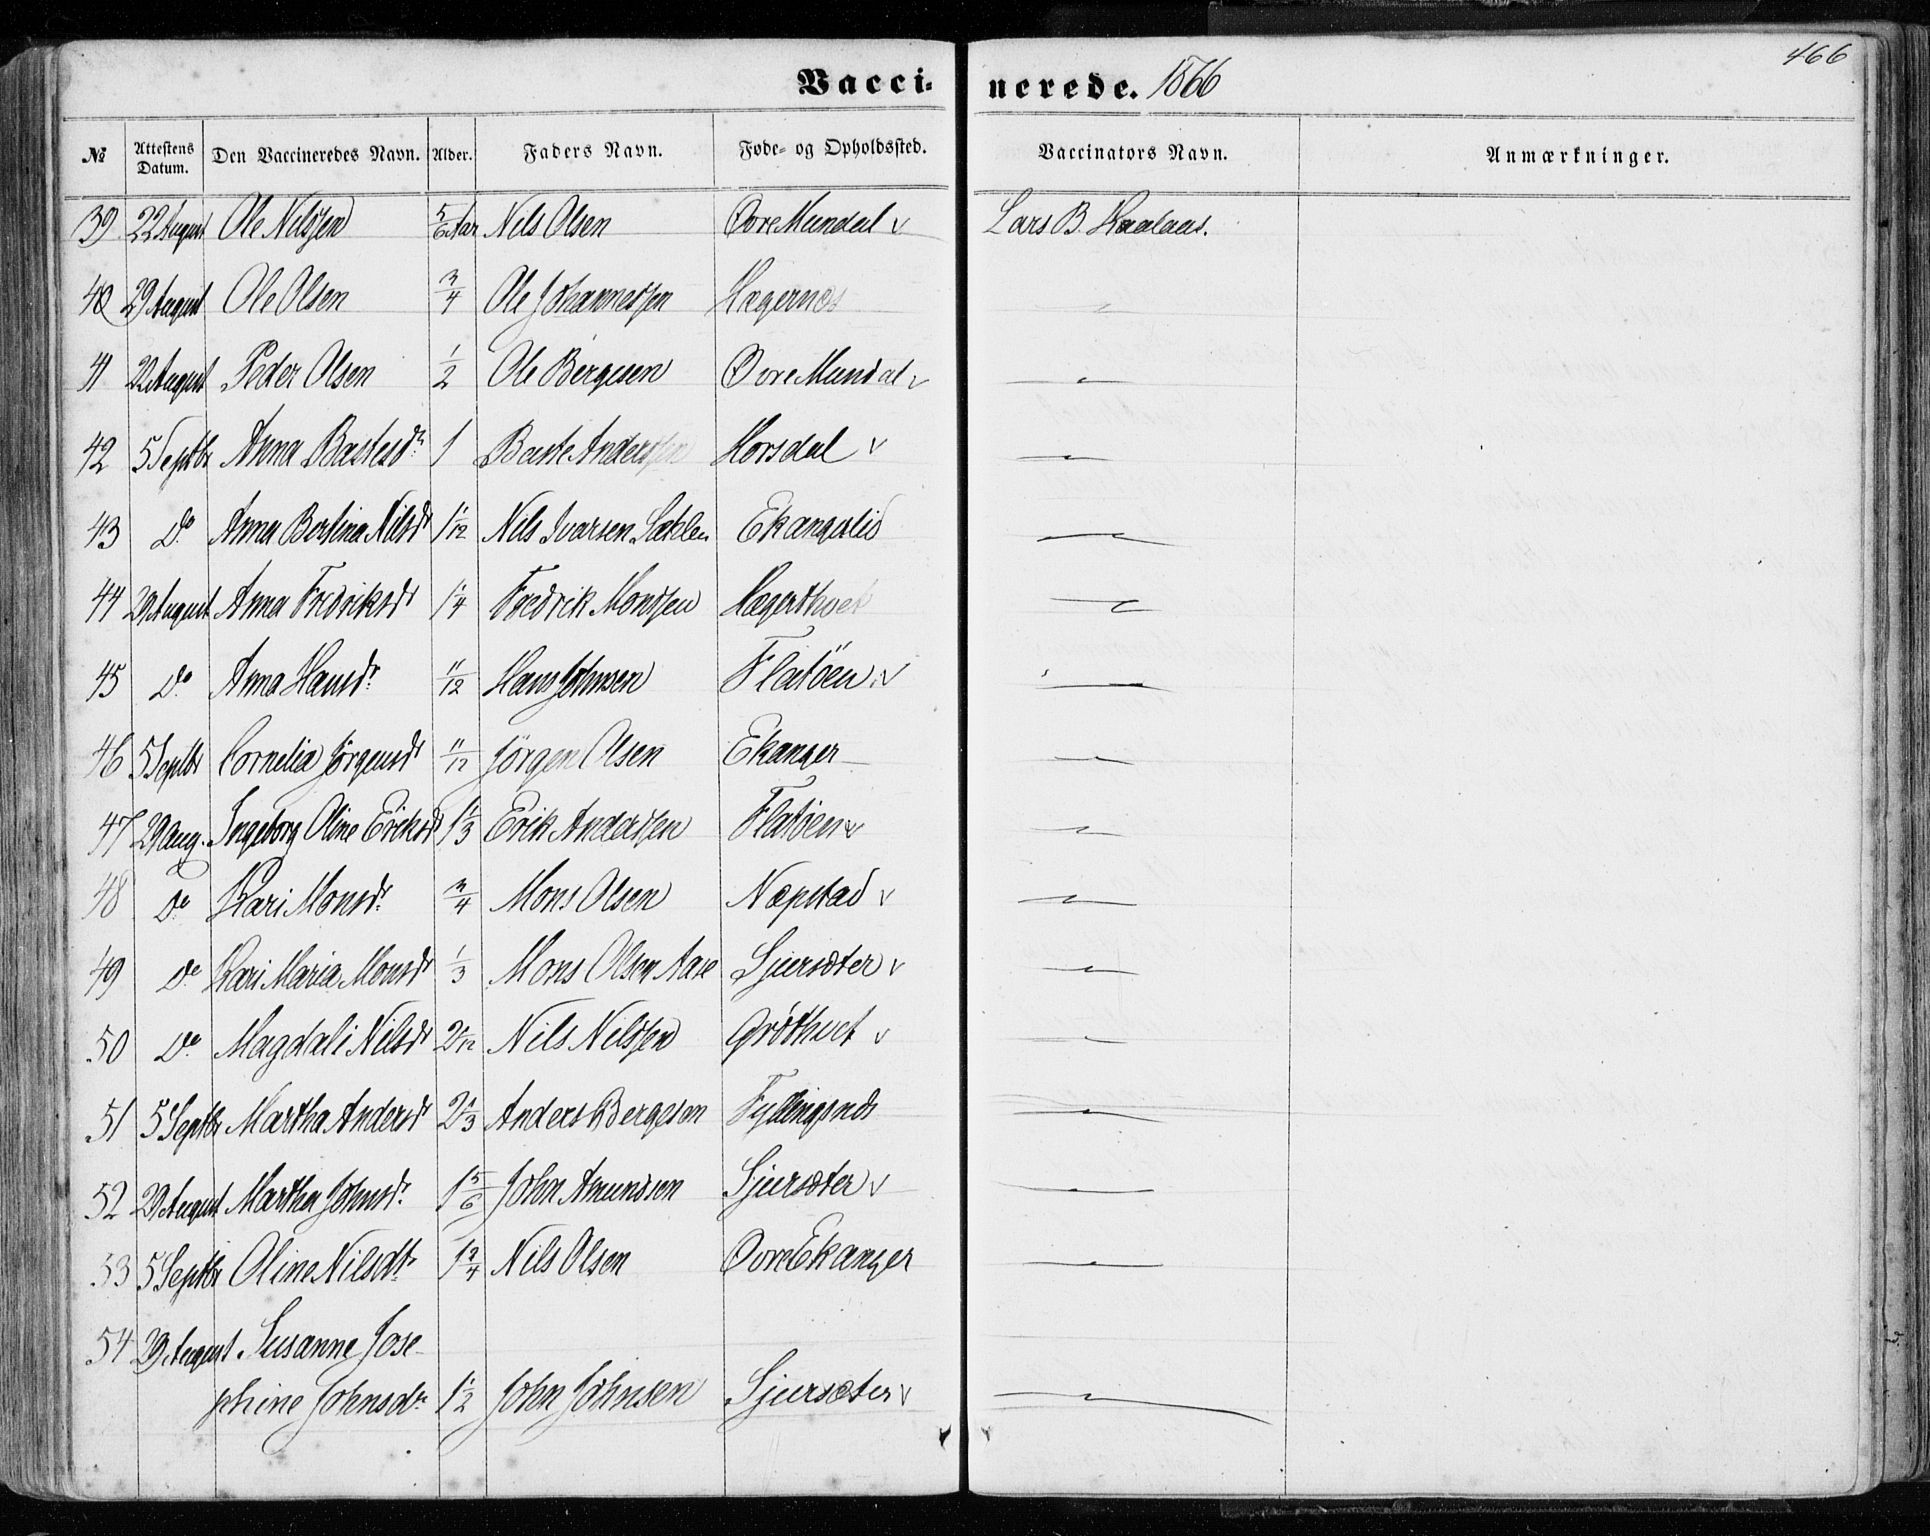 466
Vaccinerede. 1866
№ Attestens Datum. Den Vaccineredes Navn. Alder. Faders Navn. Føde- og Opholdssted. Vaccinators Navn. Anmærkninger.
39 22 August Ole Nilssen 5/6 Aar Nils Olsen Øvre Mundal v Lars B.
40 29 August Ole Olsen 3/4 Ole Johannessen Hagernæs
41 22 August Peder Olsen 1/2 Ole Bergesen Øvre Mundal v
42 5 Septbr Anna Bastesdr 1 Baste Anderssen Horsdal v
43 Do Anna Bertina Nilsdr 1 1/12 Nils Ivarsen Ekangerlid
44 29 August Anna Fredriksdr 1 1/4 Fredrik Monssen Hagerthvet
45 Do Anna Hansdr 11/12 Hans Johnsen Flatöen v
46 5 Septbr Cornelia Jörgensdr 11/12 Jörgen Olsen Ekanger
47 29 Aug. Ingeborg Oline Eriksdr 1 1/3 Erik Anderssen Flatöen v
48 Do Kari Monsdr 3/4 Mons Olsen Næpstad v
49 Do Kari Maria Monsdr 1/3 Mons Olsen Aase Sjursæter v
50 Do Magdali Nilsdr 2 1/12 Nils Nilssen Gröthvet v
51 5 Septbr Martha Andersdr 2 1/3 Anders Bergesen Fyllingsnæs
52 29 August Martha Johnsdr 1 5/6 John Amundsen Sjursæter v
53 5 Septbr Oline Nilsdtr 1 3/4 Nils Olsen Øvre Ekanger
54 29 August Susanne Jose-
phine Johnsdr 1 1/2 John Johnsen Sjursæter v